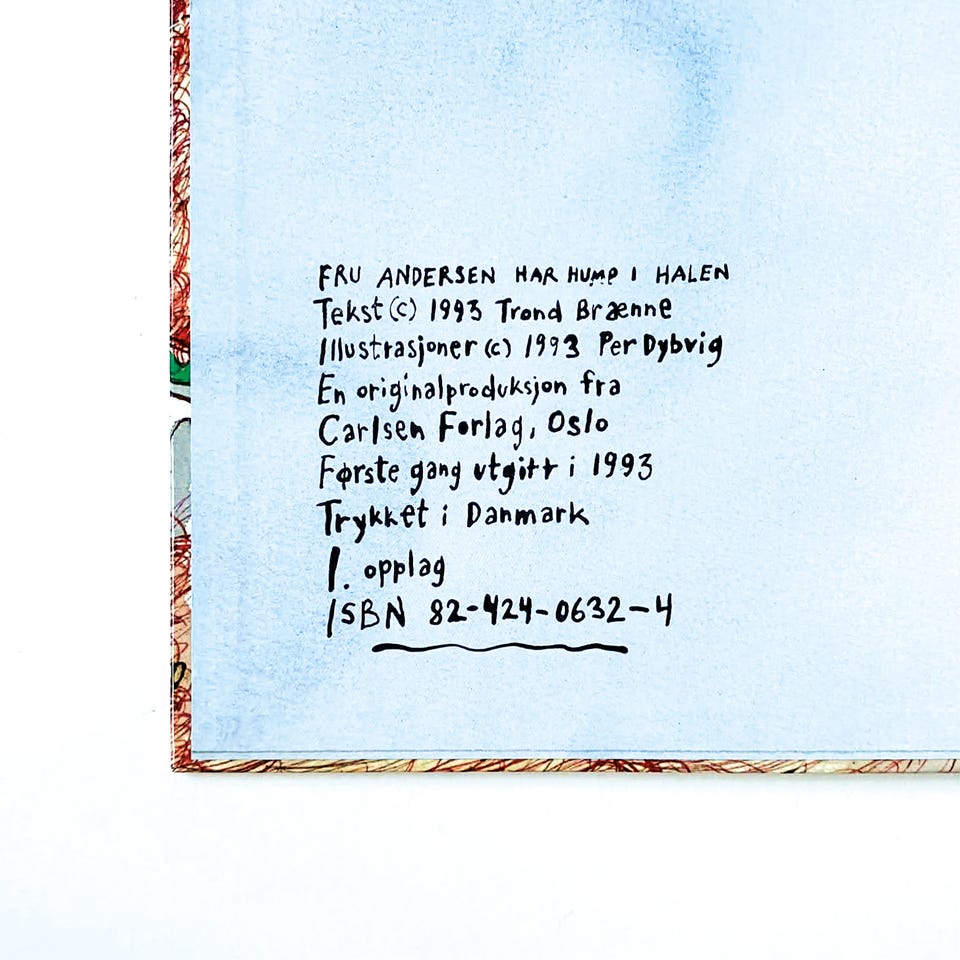 FRU ANDERSEN HAR HUMP I HALEN
Tekst (c) 1993 Trond Brænne
Illustrasjoner (c) 1993 Per Dybvig
En originalproduksjon fra
Carlsen Forlag, Oslo
Første gang utgitt i 1993
Trykket i Danmark
1. opplag
ISBN 82-424-0632-4